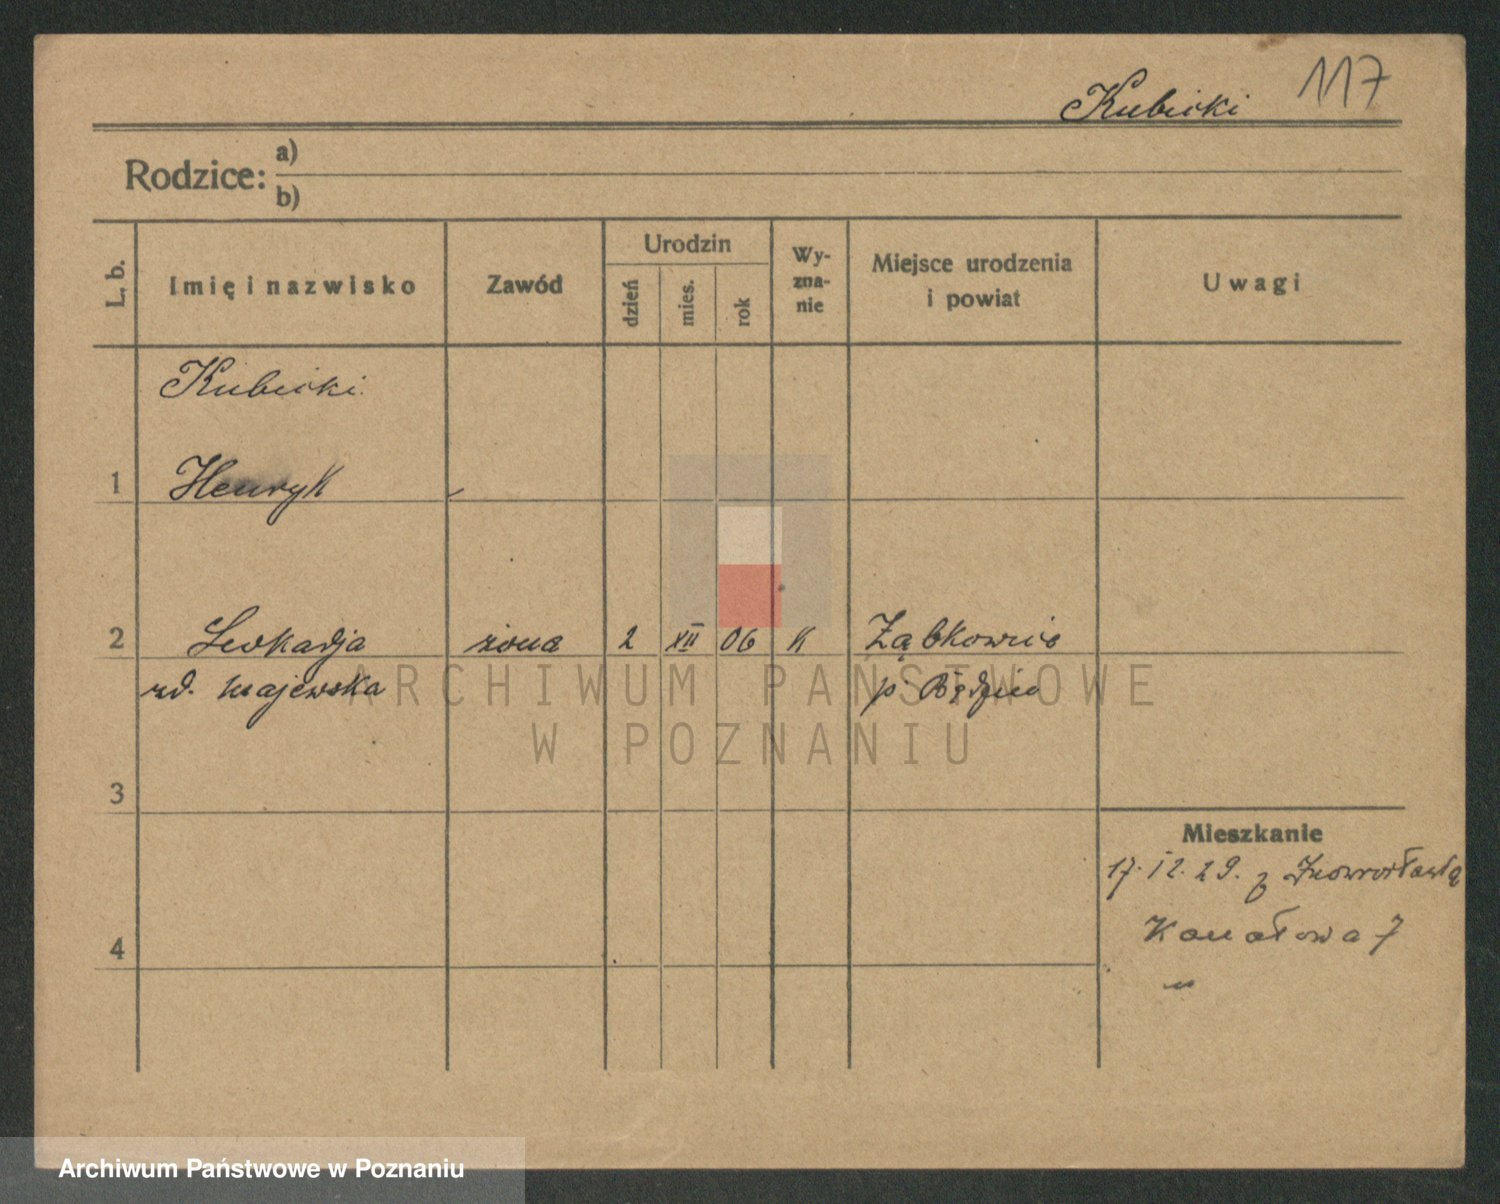 Kubicki 117
Rodzice: a)
b)
L. b. Imię i nazwisko Zawód Urodzin dzień mies. rok Wy-zna-nie Miejsce urodzenia i powiat Uwagi
Kubicki
1 Henryk
2 Leokadja żona 2 XII 06 K Ząbkowic
zd. Majewska p. Będzin
ARCHIWUM PAŃSTWOWE
W POZNANIU
3
Mieszkanie
17. 12. 29. z Inowrocławia
4 Kanałowa 7
Archiwum Państwowe w Poznaniu